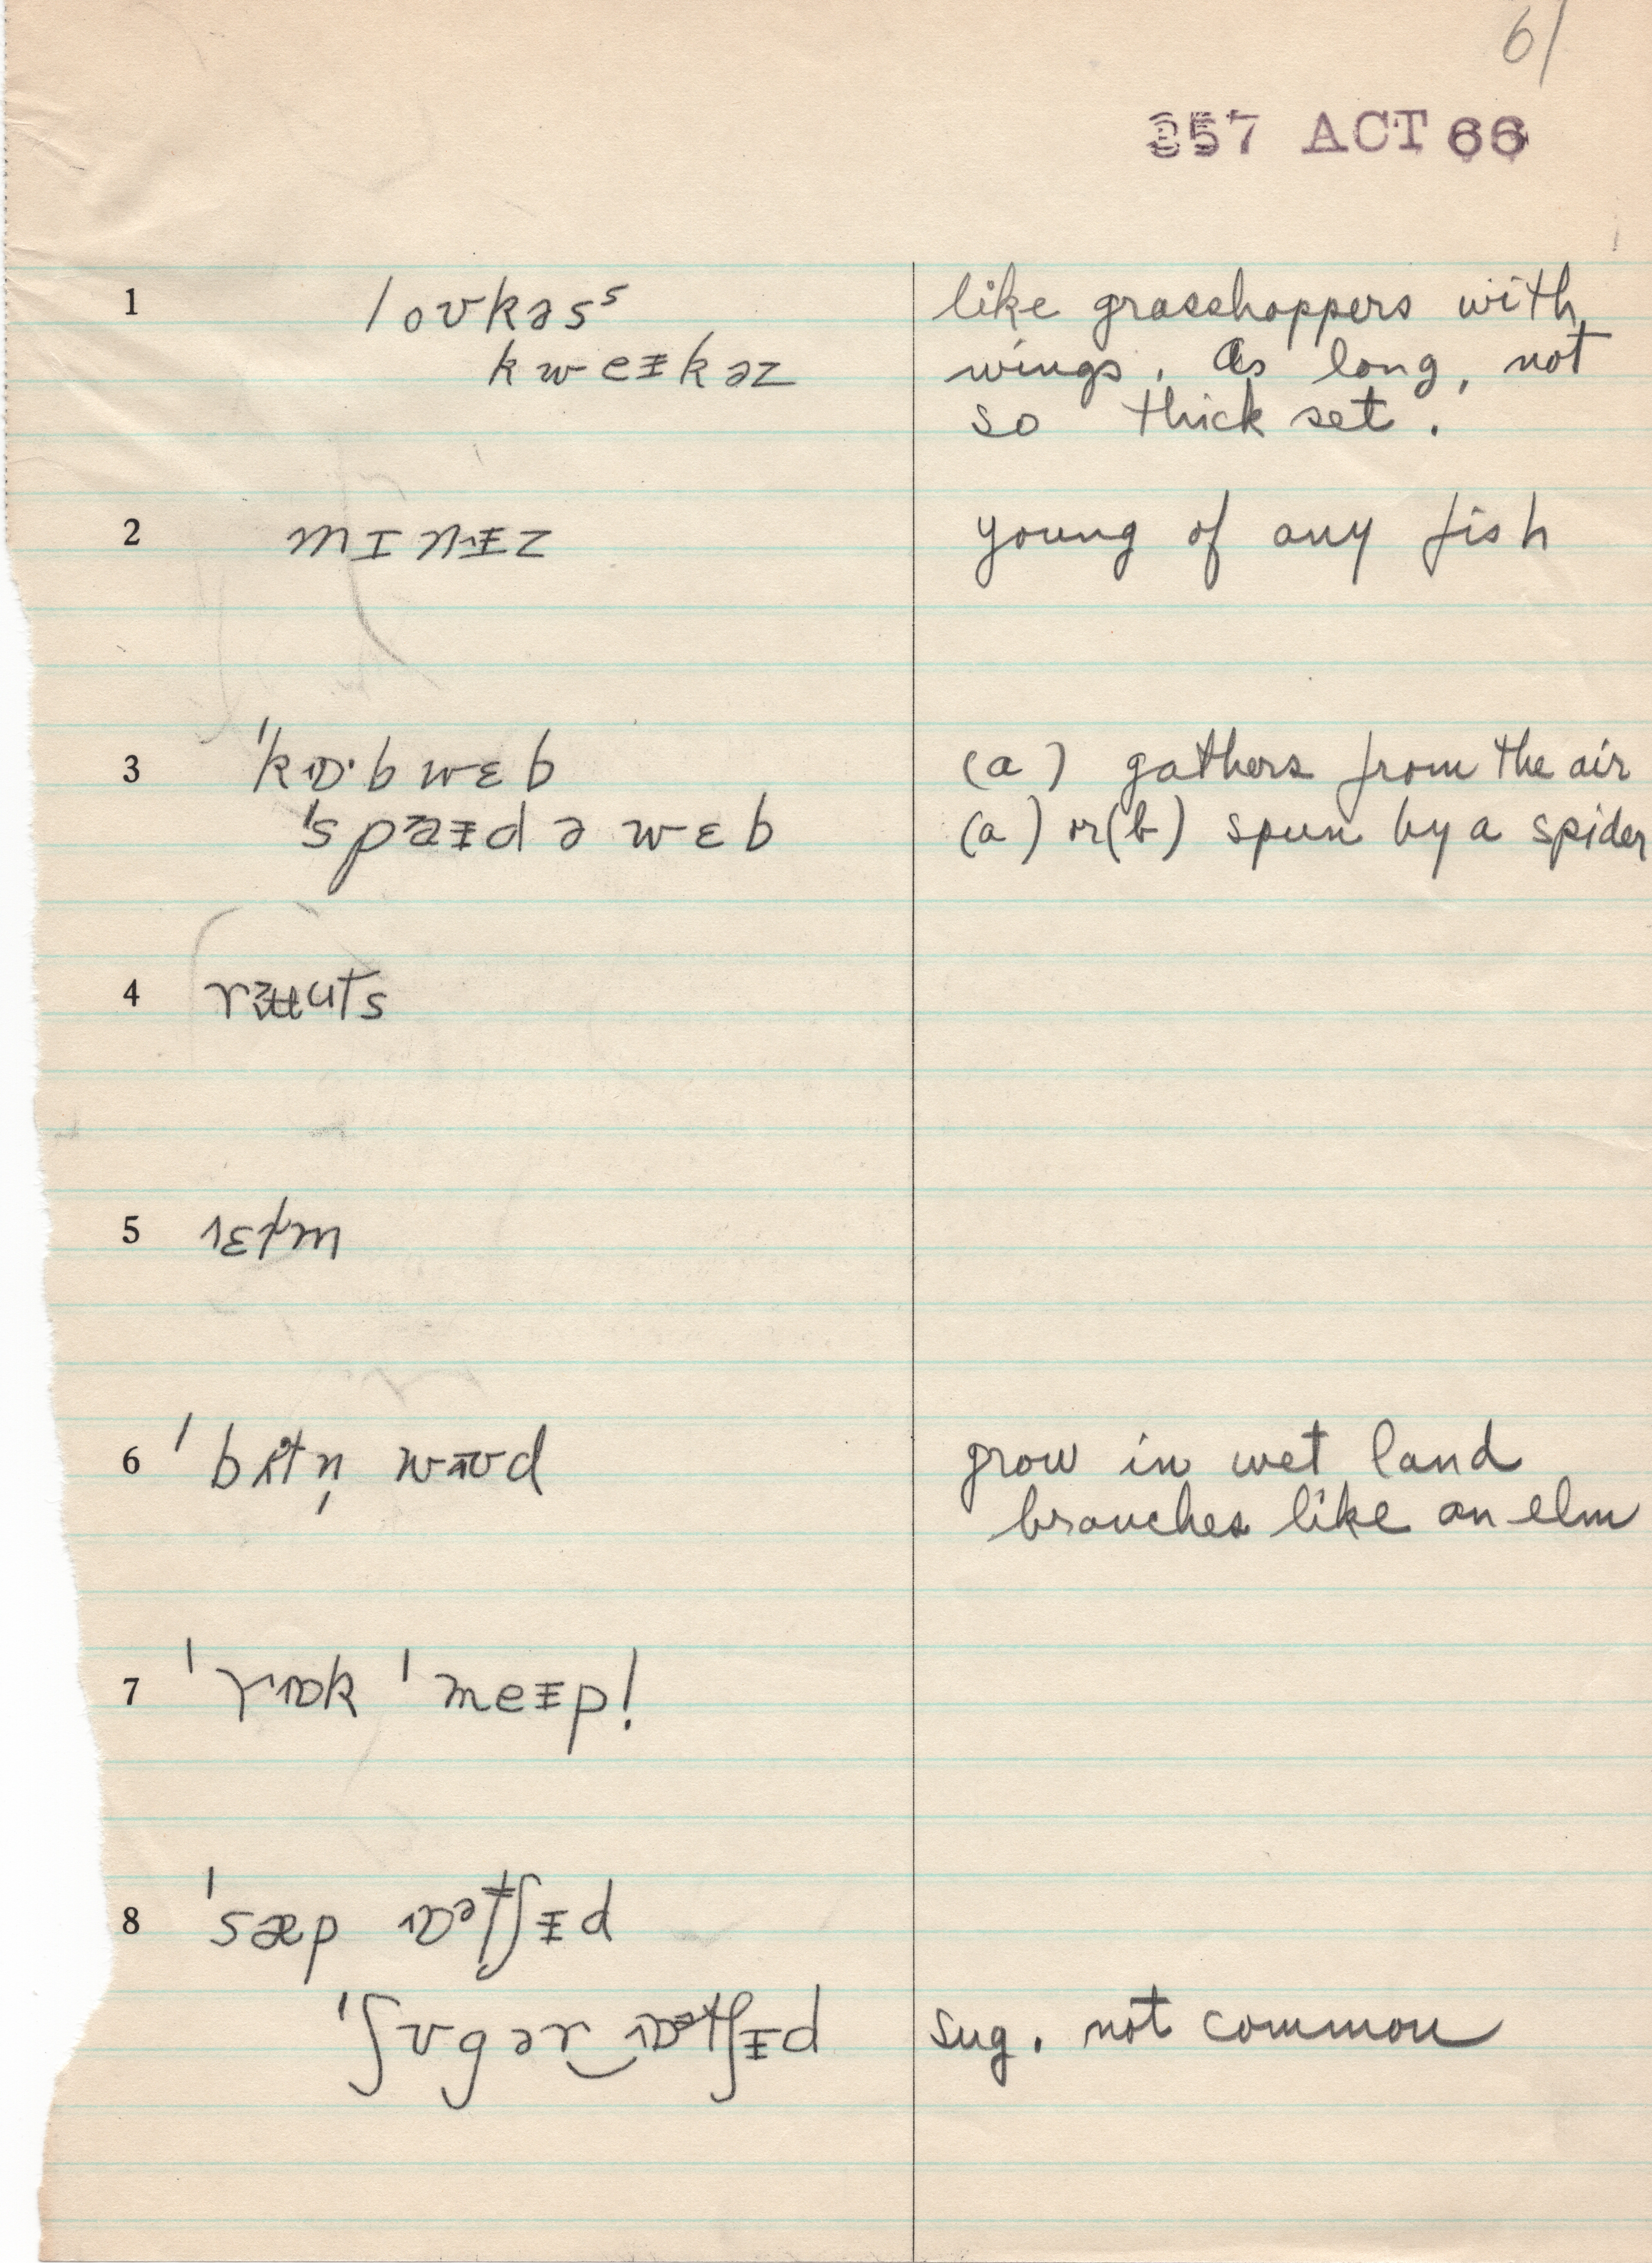 61
357 ACT 66
1 loʊkəsˢ like grasshoppers with
kweɪ̵kəz wings. As long, not
so thick set.
2 mɪnɪ̵z young of any fish
3 ˈkɒ·bwɛb (a) gathers from the air
ˈspaɪ̵dəwɛb (a) or (b) spun by a spider
4
5 ɛɫm
6 ˈbʌtn̩ wʊd grow in wet land
branches like an elm
7 ˈrɒk ˈmeɪ̵p!
8 ˈsæp ɒᵊtʃɪ̵d
ˈʃʊgər‿ɒᵊtʃɪ̵d sug. not common